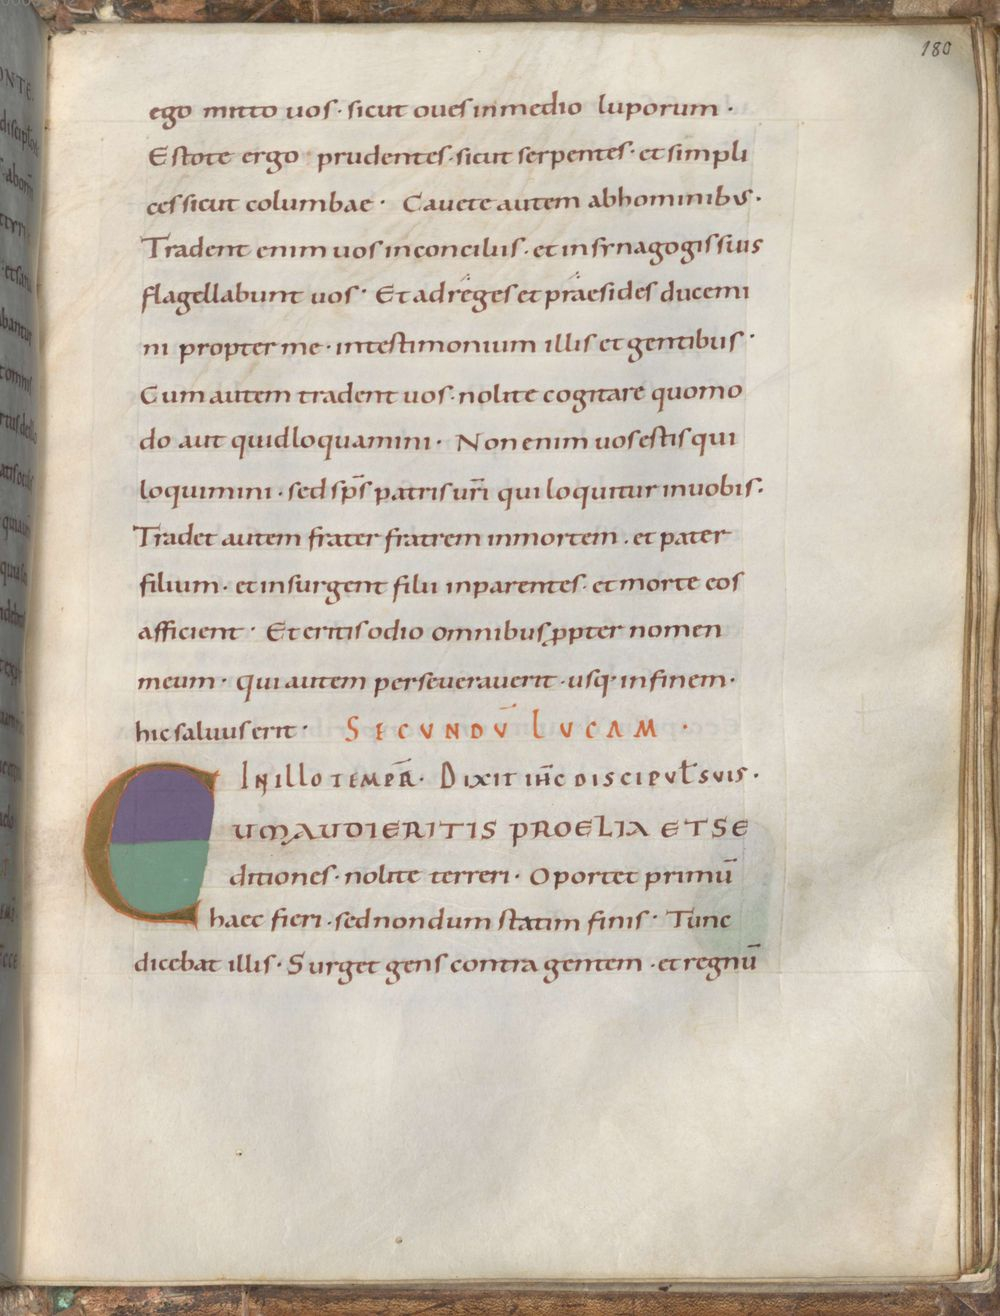 180
ego mitto uos · sicut oues inmedio luporum ·
Estote ergo prudentes · sicut serpentes · et simpli
ces sicut columbae · Cauete autem abhominibus ·
Tradent enim uos inconciliis · et insynagogis suis
flagellabunt uos · Et adreges et praesides ducemi
ni propter me · intestimonium illis et gentibus ·
Cum autem tradent uos · nolite cogitare quomo
do aut quid loquamini · Non enim uos estis qui
loquimini · sed sp̅s patris ur̅i qui loquitur inuobis ·
Tradet autem frater fratrem inmortem · et pater
filium · et insurgent filii inparentes · et morte eos
afficient · Et eritis odio omnibus ꝓpter nomen
meum · qui autem perseuerauerit · usq· infinem ·
hic saluus erit · SECUNDU̅ LUCAM ·
IN illo TEMPR̅ · Dixit ih̅c DISCIPUL̅SUIS ·
CUMAUDIERITIS PROELIA ET SE
ditiones · nolite terreri · Oportet primu̅
haec fieri · sed nondum statim finis · Tunc
dicebat illis · Surget gens contra gentem · et regnu̅